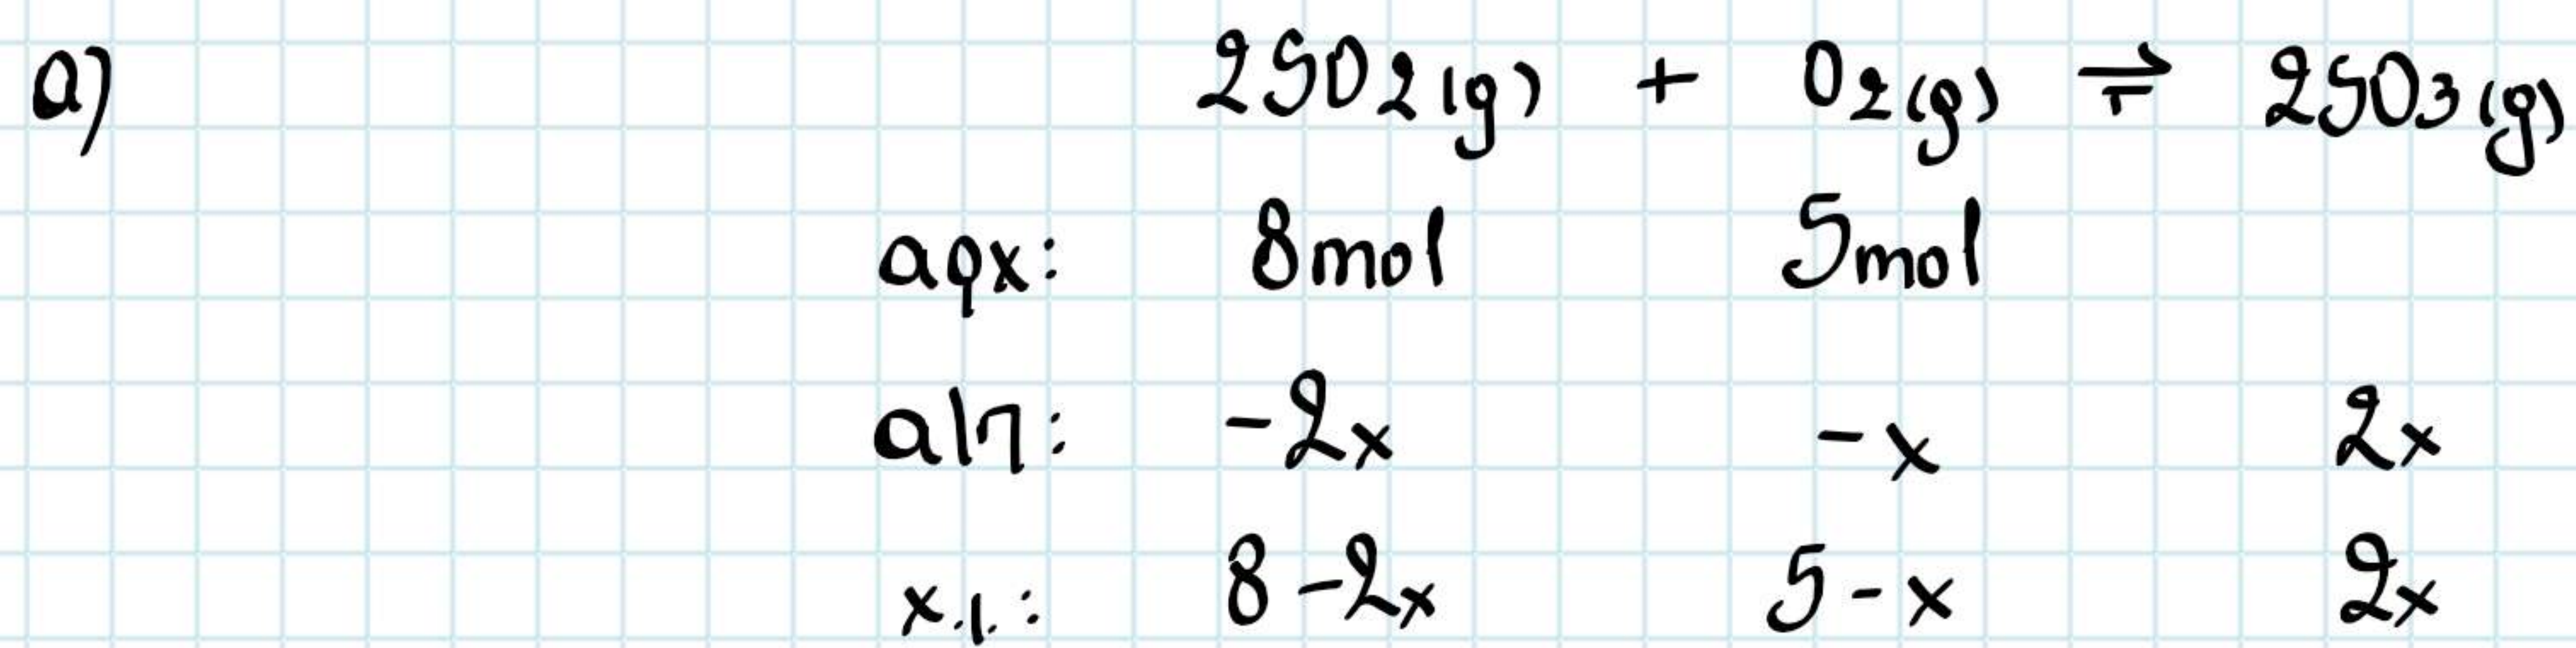 α) 2SO2(g) + O2(g) ⇌ 2SO3(g)
αρχ: 8mol 5mol
α|π: -2x -x 2x
χ.ι.: 8-2x 5-x 2x